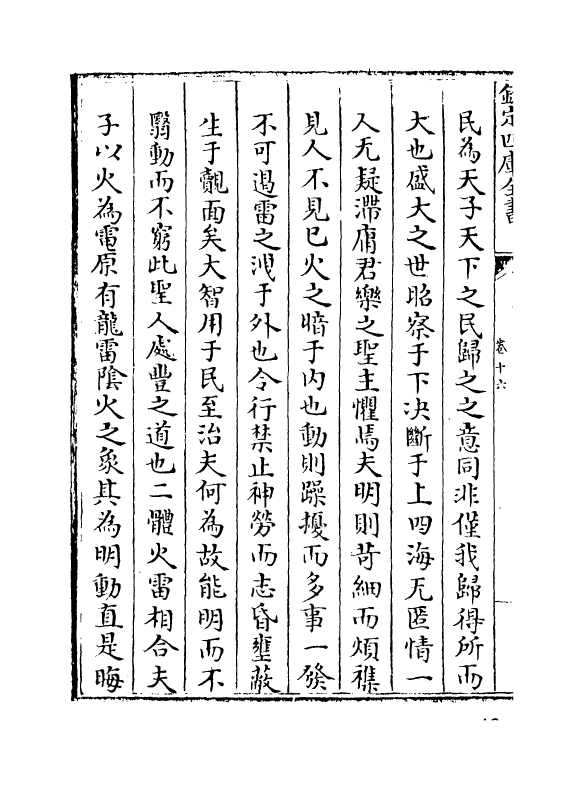 欽定四庫全書
卷十六
民為天子天下之民歸之之意同非僅我歸得所而
大也盛大之世昭察于下决斷于上四海无匿情一
人无疑滯庸君樂之聖主懼焉夫明則苛細而煩襍
見人不見已火之暗于内也動則躁擾而多事一發
不可遏雷之洩于外也令行禁止神勞而志昏壅蔽
生于覿面矣大智用于民至治夫何為故能明而不
翳動而不窮此聖人處豐之道也二體火雷相合夫
子以火為電原有龍雷陰火之象其為明動直是晦